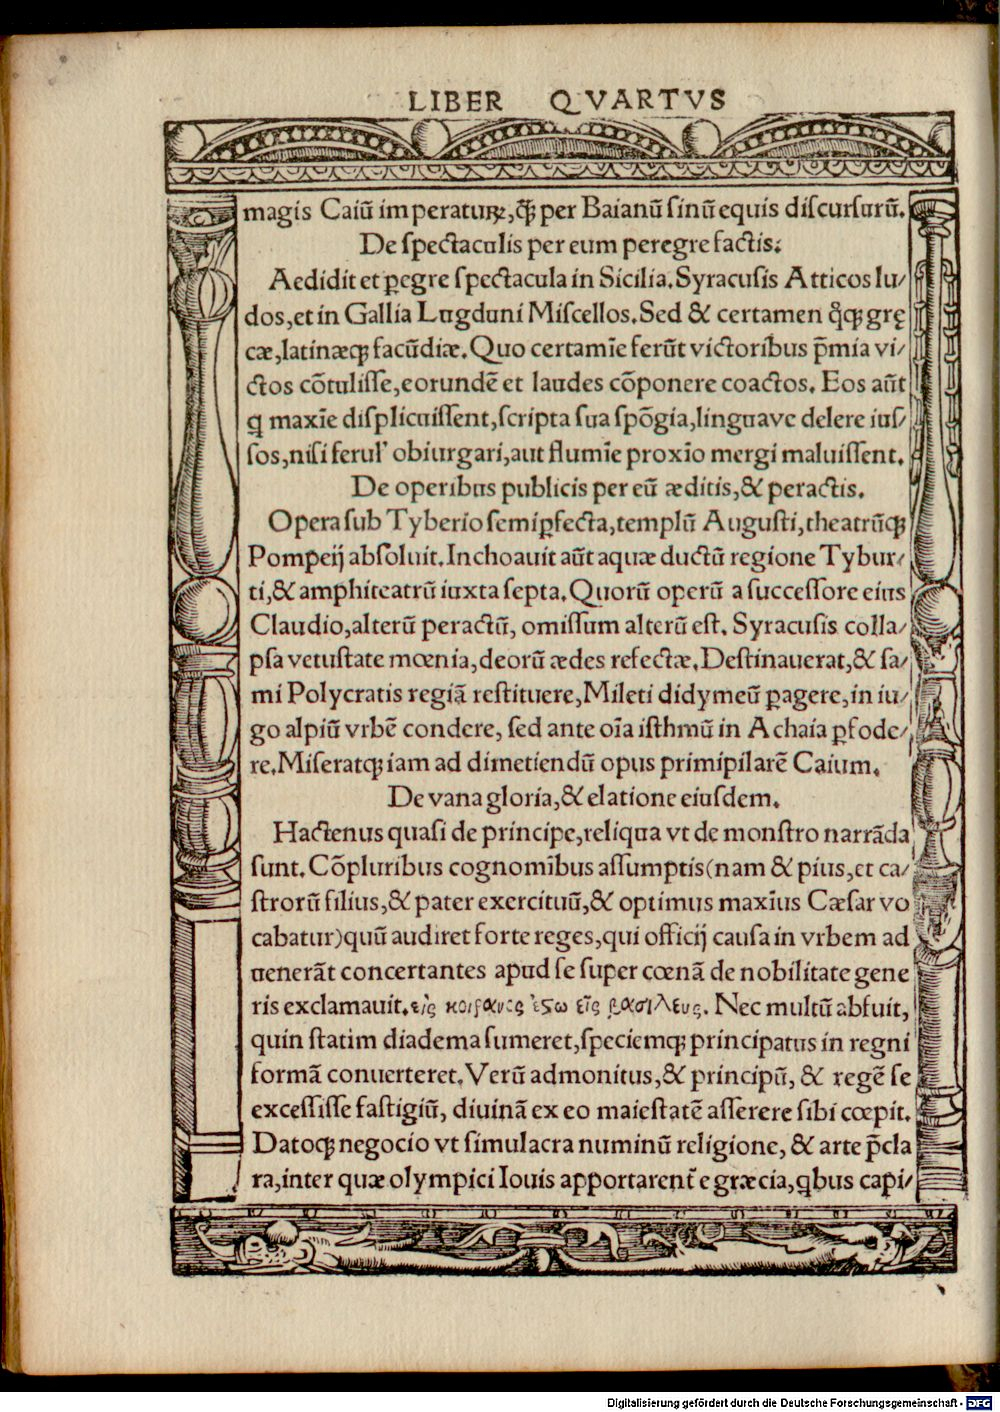 LIBER QVARTVS
magis Caiū imperaturꝝ, ꝙ̄ per Baianū sinū equis discursurū.
De spectaculis per eum peregre factis.
Aedidit et ꝑegre spectacula in Sicilia. Syracusis Atticos lu/
dos, et in Gallia Lugduni Miscellos. Sed & certamen q̊ꝗ grę
cæ, latinæꝗ facūdiæ. Quo certamīe ferūt victoribus p̄mia vi/
ctos cōtulisse, eorundē et laudes cōponere coactos. Eos aūt
ꝗ maxīe displicuissent, scripta sua spōgia, linguave delere ius/
sos, nisi ferul' obiurgari, aut flumīe proxīo mergi maluissent.
De operibus publicis per eū æditis, & peractis.
Opera sub Tyberio semiꝑfecta, templū Augusti, theatrūꝗ
Pompeij absoluit. Inchoauit aūt aquæ ductū regione Tybur/
ti, & amphiteatrū iuxta septa. Quorū operū a successore eius
Claudio, alterū peractū, omissum alterū est. Syracusis colla/
psa vetustate mœnia, deorū ædes refectæ. Destinauerat, & sa/
mi Polycratis regiā restituere, Mileti didymeū ꝑagere, in iu/
go alpiū vrbē condere, sed ante oīa isthmū in Achaia ꝑfode/
re. Miseratꝗ iam ad dimetiendū opus primipilarē Caium.
De vana gloria, & elatione eiusdem.
Hactenus quasi de principe, reliqua vt de monstro narrāda
sunt. Cōpluribus cognomībus assumptis (nam & pius, et ca/
strorū filius, & pater exercituū, & optimus maxīus Cæsar vo
cabatur) quū audiret forte reges, qui officij causa in vrbem ad
uenerāt concertantes apud se super cœnā de nobilitate gene
ris exclamauit. εἰς κοιρανος ἐστω εἷς βασιλευς. Nec multū abfuit,
quin statim diadema sumeret, speciemꝗ principatus in regni
formā conuerteret. Verū admonitus, & principū, & regē se
excessisse fastigiū, diuinā ex eo maiestatē asserere sibi cœpit.
Datoꝗ negocio vt simulacra numinū religione, & arte p̄cla
ra, inter quæ olympici Iouis apportarent̄ e græcia, ꝗbus capi/
Digitalisierung gefördert durch die Deutsche Forschungsgemeinschaft - DFG